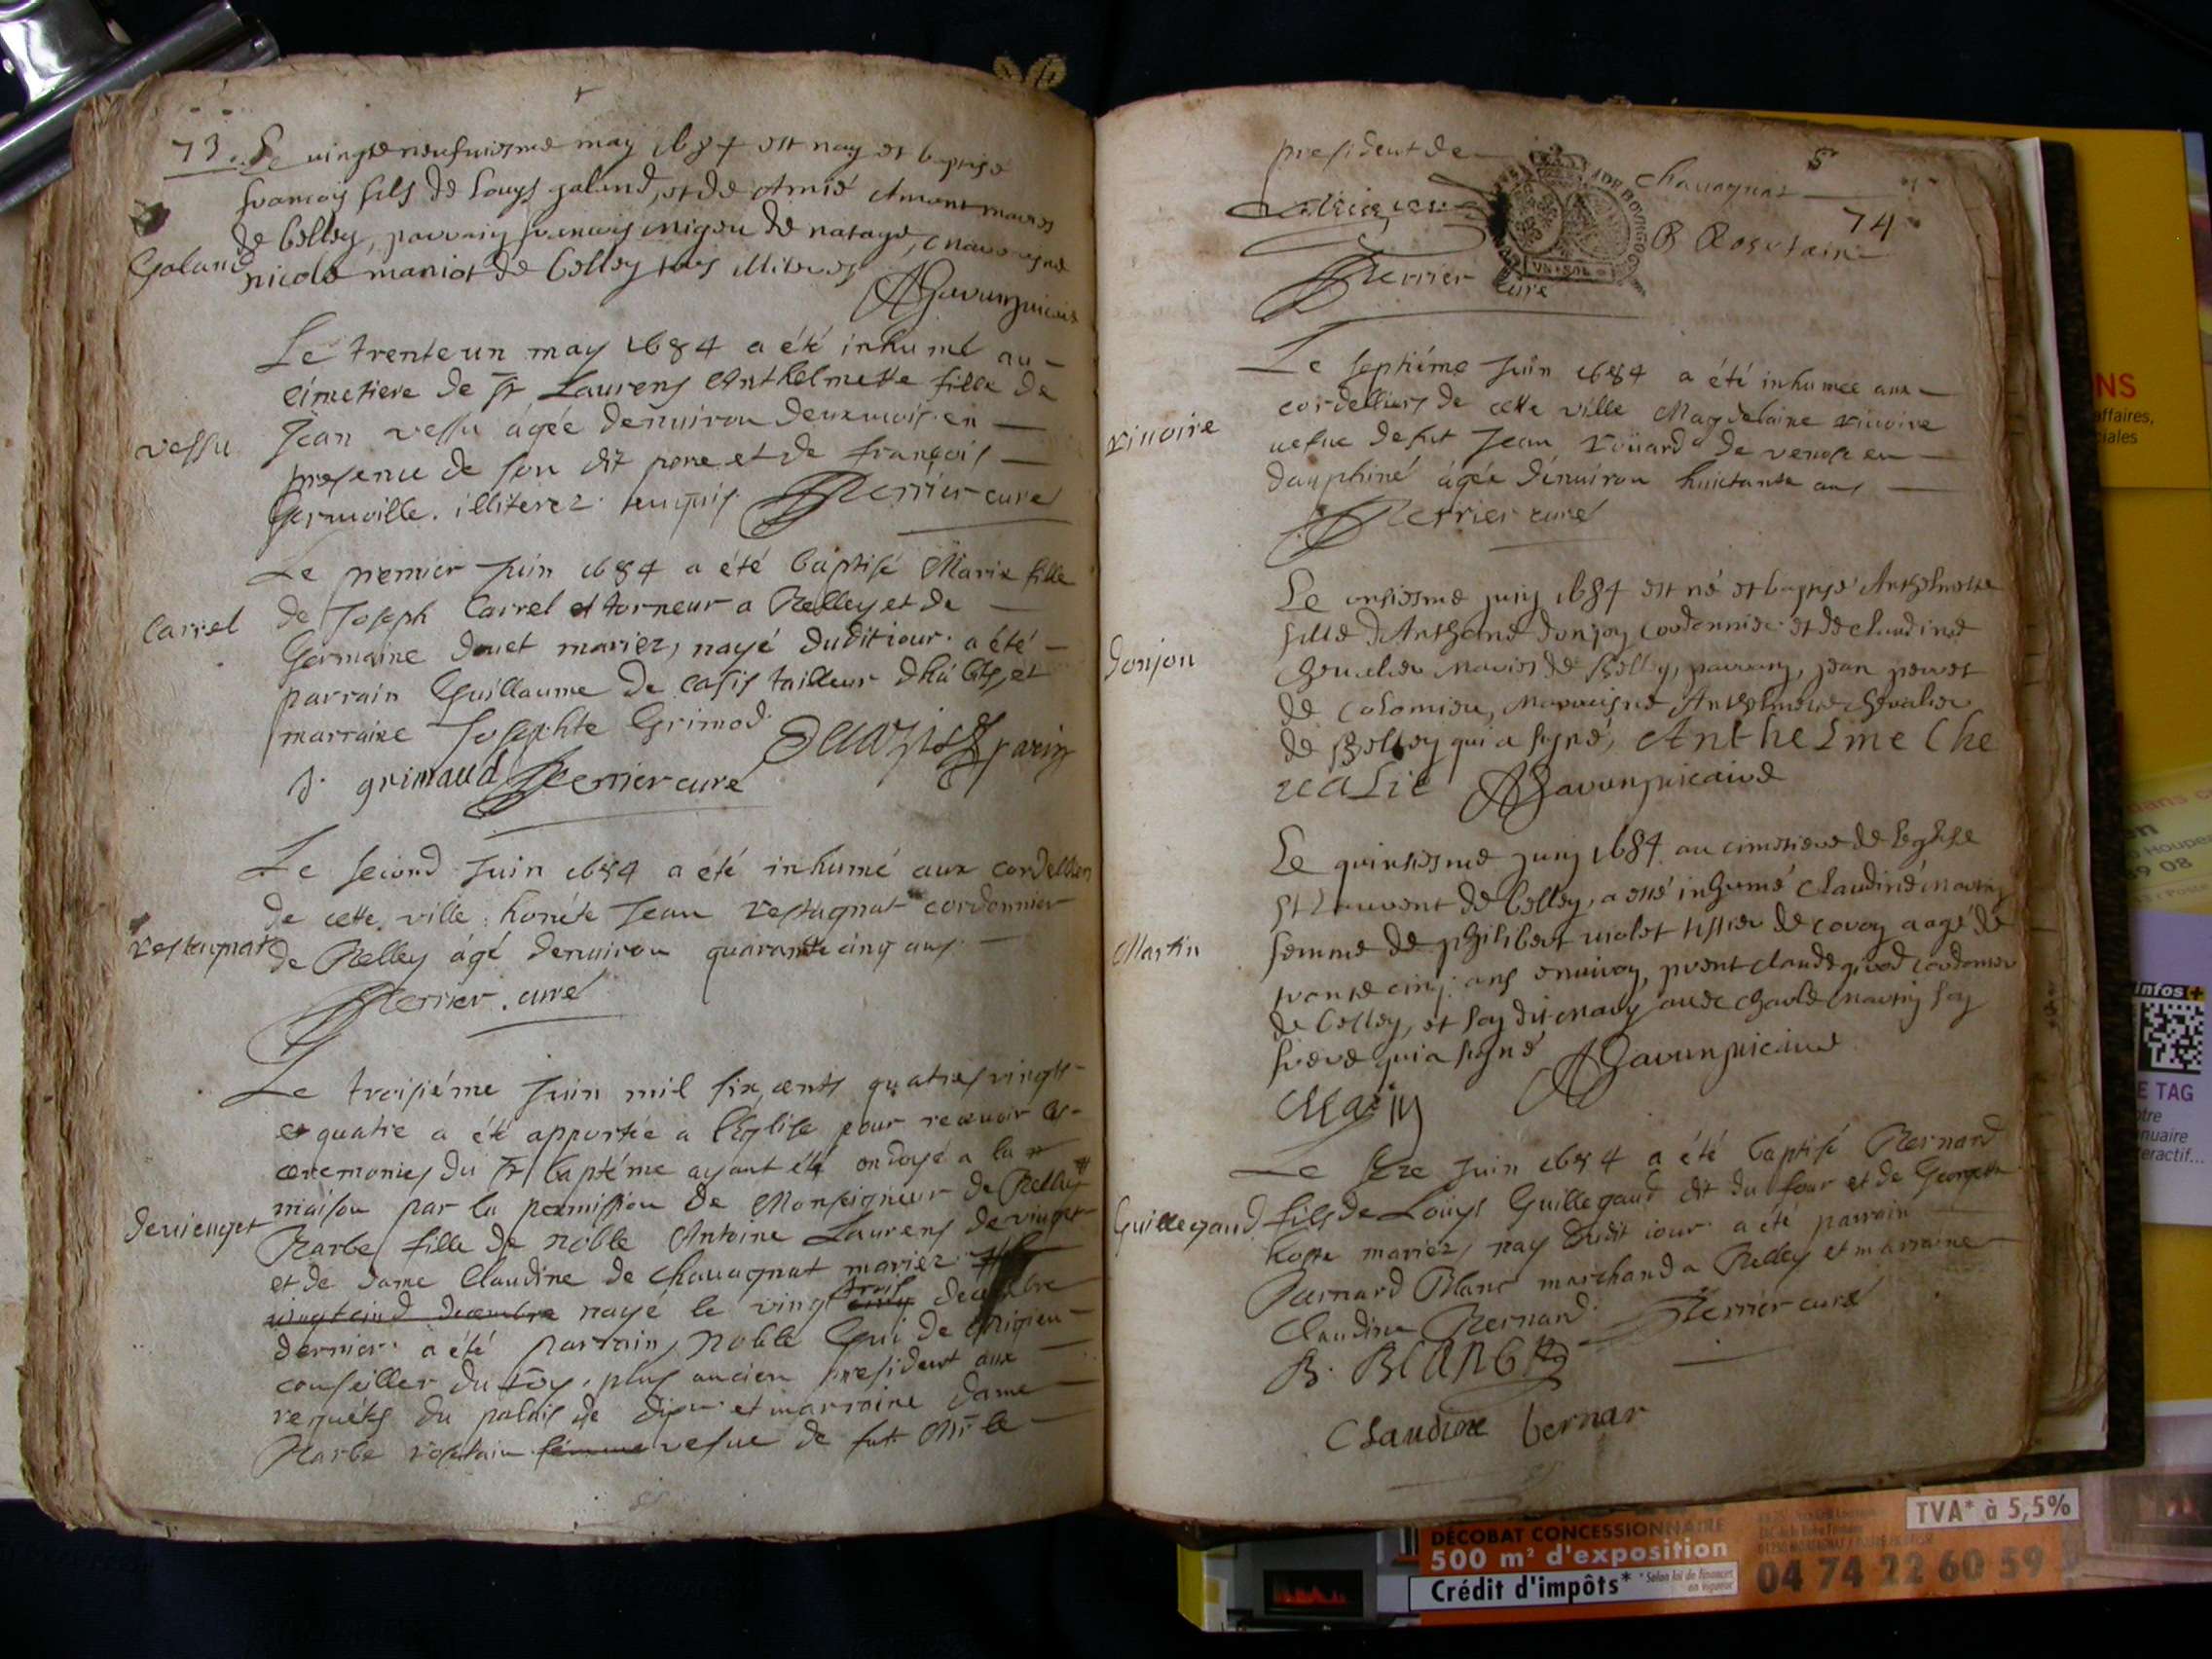 73. Le vingt neufviesme may 1684 est nay et baptisé
francois fils de Louys galand, et de Amié Amont mariés
de belley, parrain francois migeu de natage, marraine
Galand
nicole maniot de belley tous illiteres
Le trente un may 1684 a été inhumé au
cimetiere de St Laurens Anthelmette fille de
Jean vessu agée denuiron deux mois en
vessu
presence de son dit pere et de françois
illiterez requis Perrier curé
Le premier Juin 1684 a été baptisé Marie fille
de Joseph Carrel et torneur a Belley et de
Carrel
Germaine douet mariez, nayé duditiour a été
parrain Guillaume de Casis tailleur dhabits, et
marraine Josephte Grimod.
Decazis parin
J. grimaud Perrier curé
Le second Juin 1684 a été inhumé aux cordelliers
de cette ville honéte Jean Vestugnat cordonnier
de Belley ágé denuiron quarante cinq ans
Perrier curé
Le troisiéme Juin mil six cents quatres vingts
et quatre a été apportée a l'Eglise pour recevoir les
ceremonies du St baptéme ayant été ondoyé a la
maison par la permission de Monseigneur de Belley
devienget
Barbe fille de noble Antoine Laurens de vienget
et de Dame Claudine de chavagnat mariez
vingt cind decembre nayé le vingt trois decembre
dernier a été parrain, noble Gui de Migieu
conseiller du Roy plus ancien president aux
requétes du palais de dijon et marraine dame
Barbe rosetain femme vefue de fut Mr le
president de chavagnat
74
B Rosetain
Perrier curé
Le septiéme Juin 1684 a été inhumée aux
cordelliers de cette ville Magdelaine rivoire
rivoire
uefue de fut Jean roüard de en
dauphiné ágée dénuiron huictante ans
Perrier curé
Le onsiesme juin 1684 est né et baptisé Anthelmette
fille dAnthoine donjon cordonnier et de claudine
donjon
Chevalier mariés de Belley, parrain, jean
de Colomieu, marraigne Anthelmette Chevalier
de Belley qui a signé, Anthelme Che
ualie
Le quinsiesme juin 1684 au cimetiere de leglise
St Laurent de belley, a esté inhumé Claudine martin
Martin
femme de philibert violet tissier de agé de
trente cinq ans environ, presents claude girod cordonier
de belley, et son dit mary avec charle martin son
frere qui a signé
CMartin
Le seze Juin 1684 a été baptisé Bernard
Guillegaud
fils de Loüys Guillegaud dit du four et de Georgette
mariez, nay dudit iour a été parrain
Barnard Blanc marchand a Belley et marraine
Claudine Bernard. Perrier curé
B. BLANC
Claudine bernar
ONS
affaires,
ciales
Infos+
E TAG
DECOBAT CONCESSIONNAIRE
500 m² d'exposition
Crédit d'impôts*
TVA* à 5,5%
04 74 22 60 59